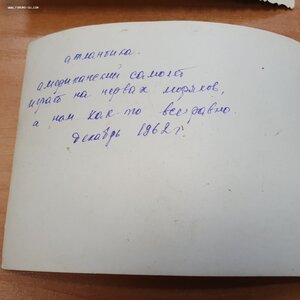 www.forums-su.com
атлантика.
американский самолёт
играет на нервах моряков,
а нам как-то всеравно.
декабрь 1962 г.